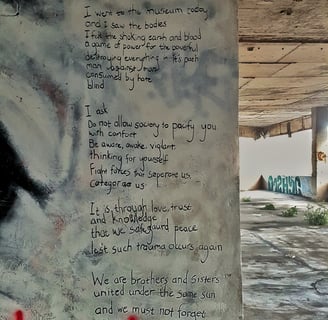 I went to the museum today
and I saw the bodies
I felt the shaking earth and blood
a game of power for the powerful
destroying everything in it's path
man against man
consumed by hate
blind
I ask
Do not allow society to pacify you
with comfort
Be aware, awake, vigilant
thinking for yourself
Fight forces that seperate us,
Categorize us
It is through love, trust
and knowledge
that we safeguard peace
lest such trauma occurs again
We are brothers and sisters
united under the same sun
and we must not forget